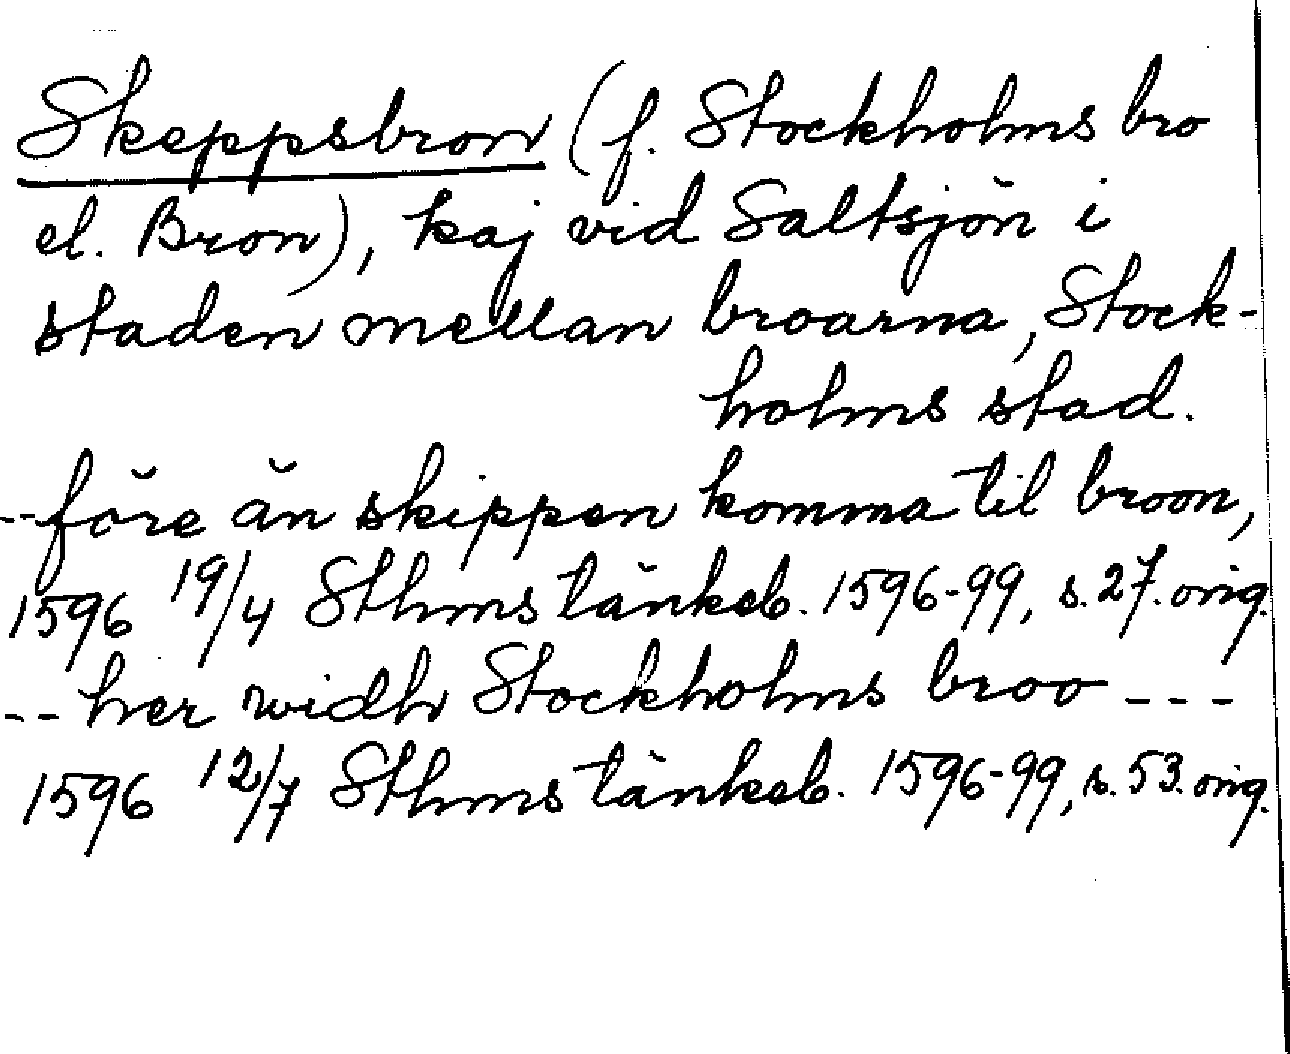 Skeppsbron (f. Stockholms bro
el. Bron), kaj vid Saltsjön i
staden mellan broarna, Stock-
holms stad.
-- före än skippen komma til broon,
1596 19/4 Sthms tänkeb. 1596-99, s. 27. orig.
-- her widh Stockholms broo ---
1596 12/7 Sthms tänkeb. 1596-99, s. 53. orig.